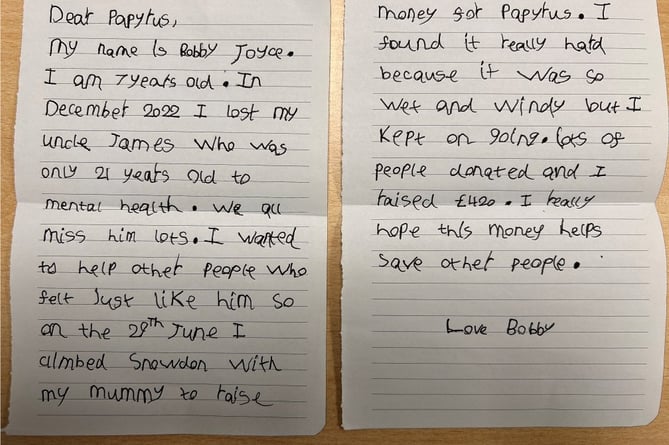 Dear Papyrus,
My name is Bobby Joyce.
I am 7 years old. In
December 2022 I lost my
uncle James who was
only 21 years old to
mental health. We all
miss him lots. I wanted
to help other people who
felt just like him so
on the 29th June I
climbed Snowdon with
my mummy to raise
money for Papyrus. I
found it really hard
because it was so
wet and windy but I
kept on going. lots of
people donated and I
raised £420. I really
hope this money helps
save other people.
Love Bobby